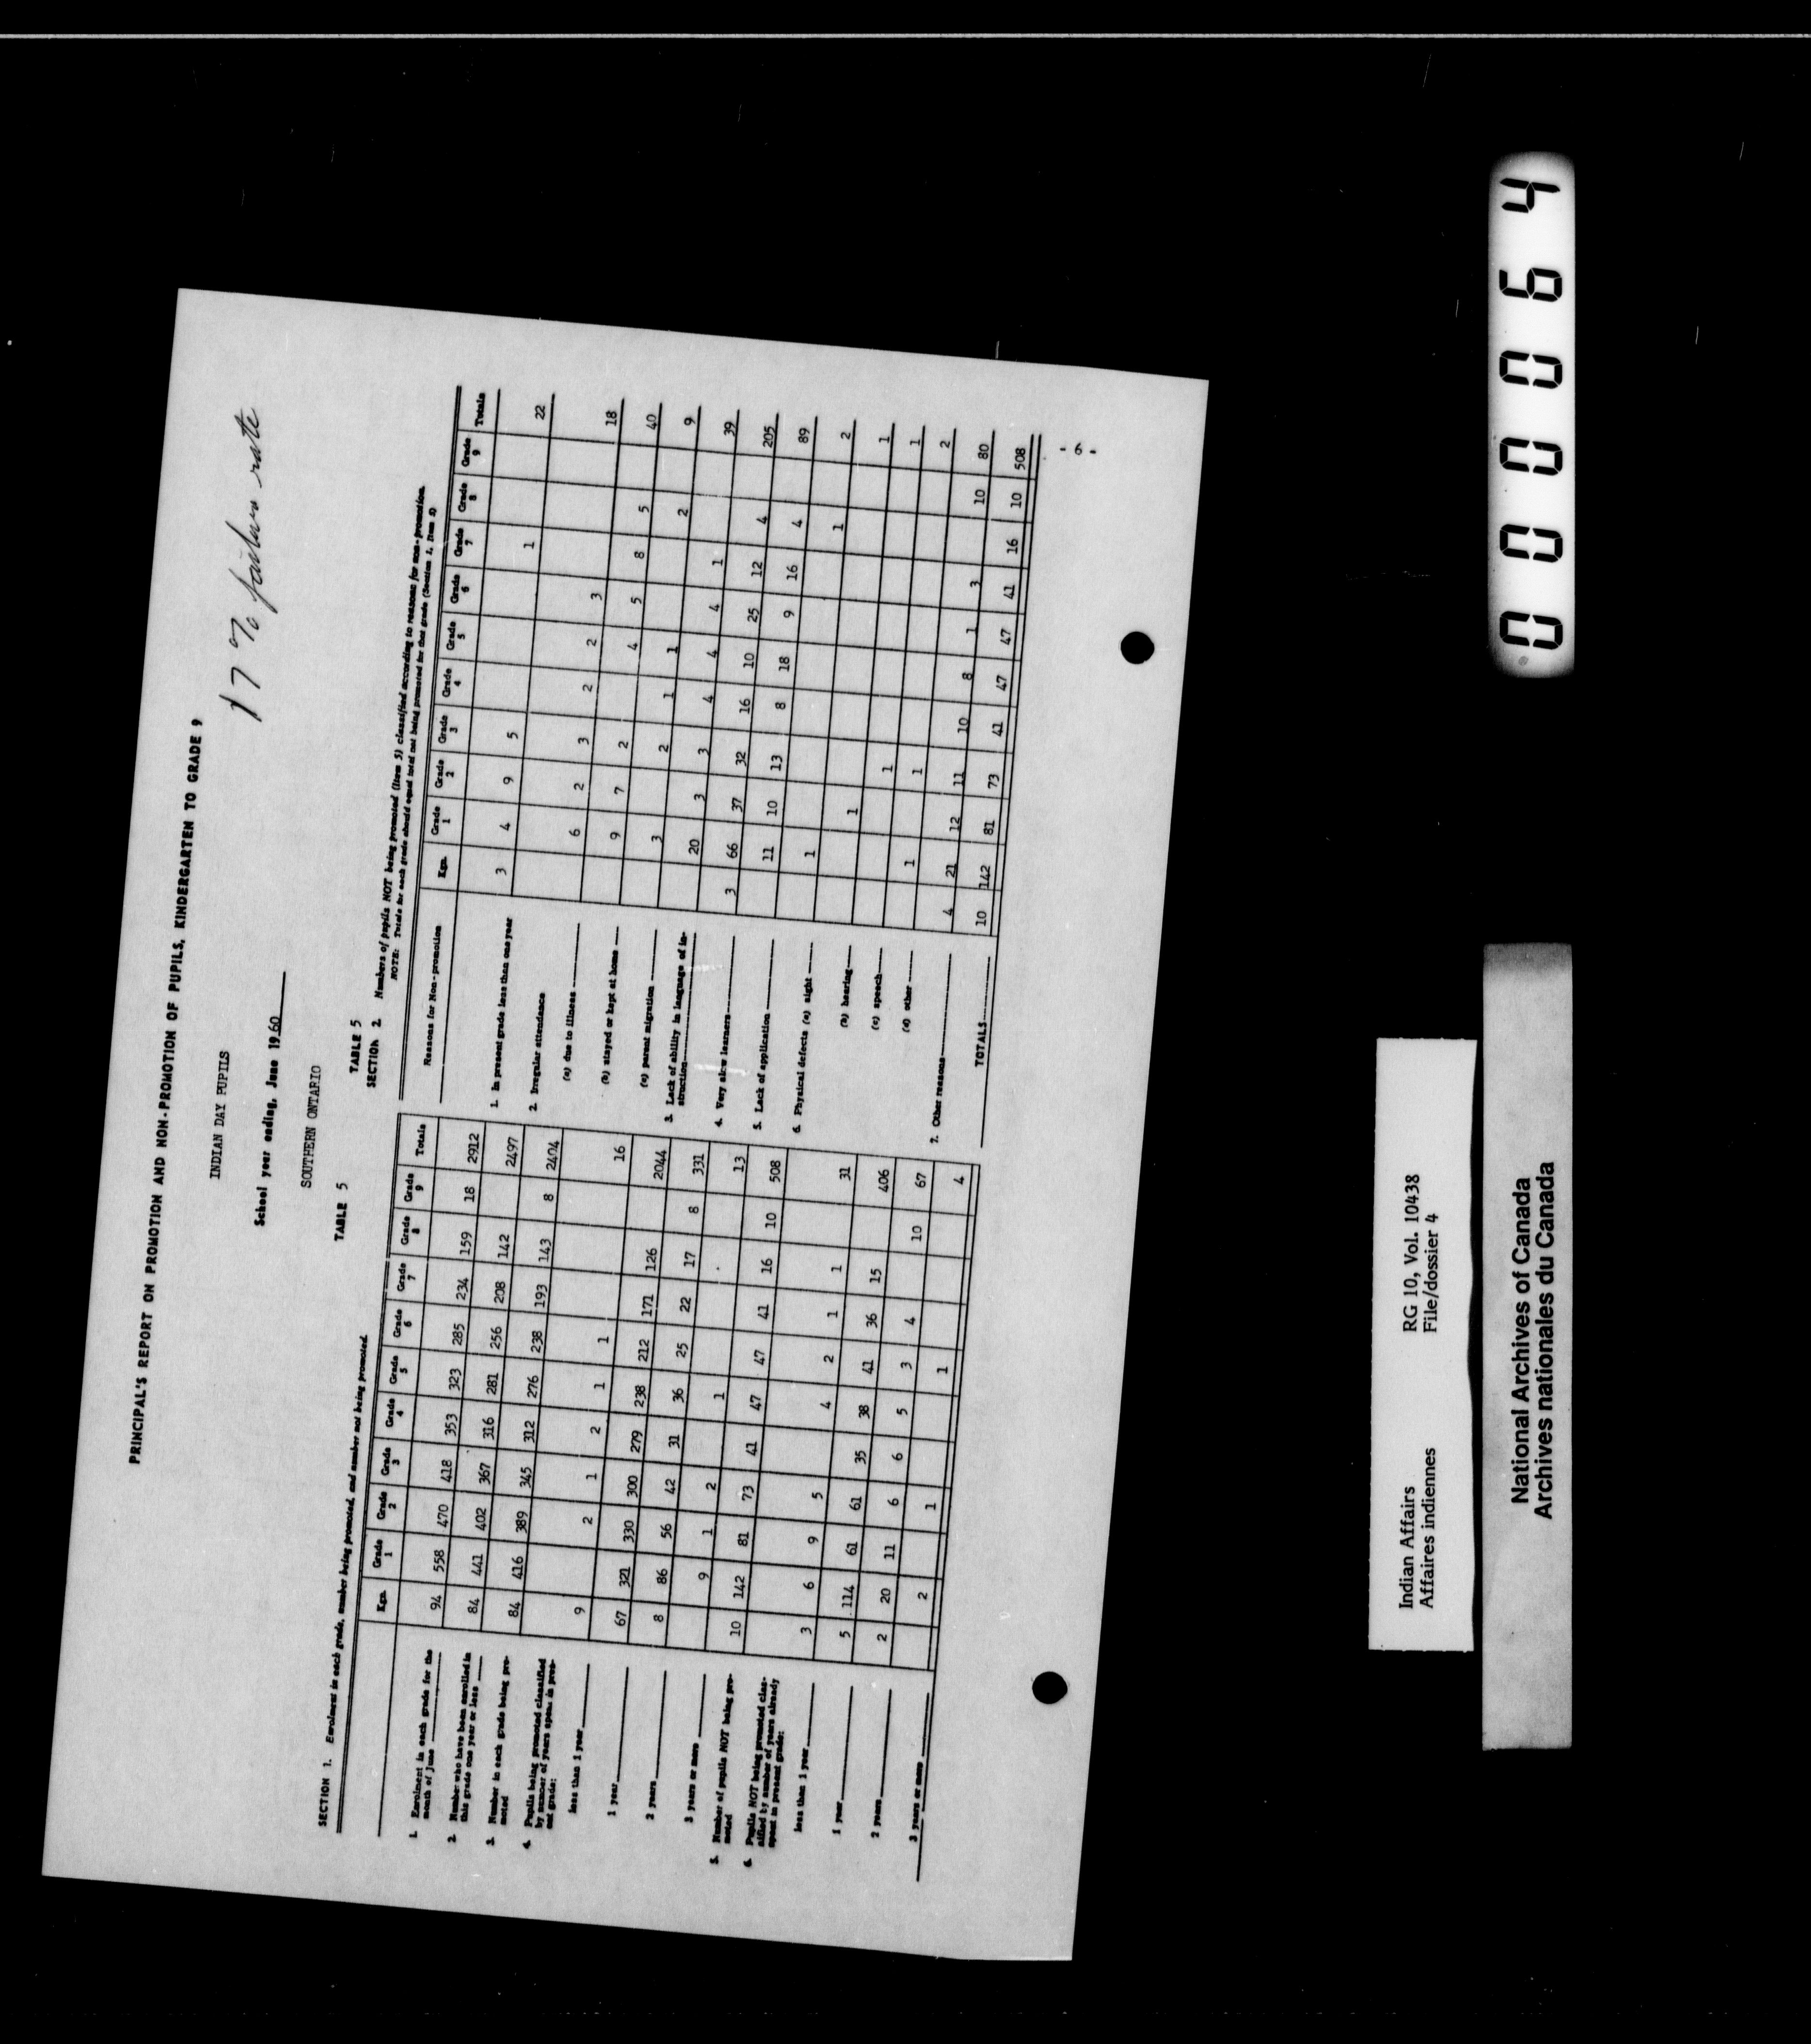 PRINCIPAL'S REPORT ON PROMOTION AND NON-PROMOTION OF PUPILS, KINDERGARTEN TO GRADE 9
17% failure rate
INDIAN DAY PUPILS
School year ending, June 1960
SOUTHERN ONTARIO
TABLE 5
SECTION 1. Enrolment in each grade, number being promoted, and number not being promoted.
Kgn. Grade 1 Grade 2 Grade 3 Grade 4 Grade 5 Grade 6 Grade 7 Grade 8 Grade 9 Totals
1. Enrolment in each grade for the
month of June 94 558 470 418 353 323 285 234 159 18 2912
2. Number who have been enrolled in
this grade one year or less 84 441 402 367 316 281 256 208 142 2497
3. Number in each grade being pro-
moted 84 416 389 345 312 276 238 193 143 8 2404
4. Pupils being promoted classified
by number of years spent in pres-
ent grade:
less than 1 year 9 2 1 2 1 1 16
1 year 67 321 330 300 279 238 212 171 126 2044
2 years 8 86 56 42 31 36 25 22 17 8 331
3 years or more 9 1 2 1 13
5. Number of pupils NOT being pro-
moted 10 142 81 73 41 47 47 41 16 10 508
6. Pupils NOT being promoted clas-
sified by number of years already
spent in present grade:
less than 1 year 3 6 9 5 4 2 1 1 31
1 year 5 114 61 61 35 38 41 36 15 406
2 years 2 20 11 6 6 5 3 4 10 67
3 years or more 2 1 1 4
TABLE 5
SECTION 2. Numbers of pupils NOT being promoted (Item 5) classified according to reasons for non-promotion.
NOTE: Totals for each grade should equal total not being promoted for that grade (Section 1, Item 5)
Reasons for Non-promotion Kgn. Grade 1 Grade 2 Grade 3 Grade 4 Grade 5 Grade 6 Grade 7 Grade 8 Grade 9 Totals
1. In present grade less than one year 3 4 9 5 1 22
2. Irregular attendance
(a) due to illness 6 2 3 2 2 3 18
(b) stayed or kept at home 9 7 2 4 5 8 5 40
(c) parent migration 3 2 1 1 2 9
3. Lack of ability in language of in-
struction 20 3 3 4 4 4 1 39
4. Very slow learners 3 66 37 32 16 10 25 12 4 205
5. Lack of application 11 10 13 8 18 9 16 4 89
6. Physical defects (a) sight 1 1 2
(b) hearing 1 1
(c) speech 1 1
(d) other 1 1 2
7. Other reasons 4 21 12 11 10 8 1 3 10 80
TOTALS 10 142 81 73 41 47 47 41 16 10 508
- 6 -
Indian Affairs RG 10, Vol. 10438
Affaires indiennes File/dossier 4
National Archives of Canada
Archives nationales du Canada
000064